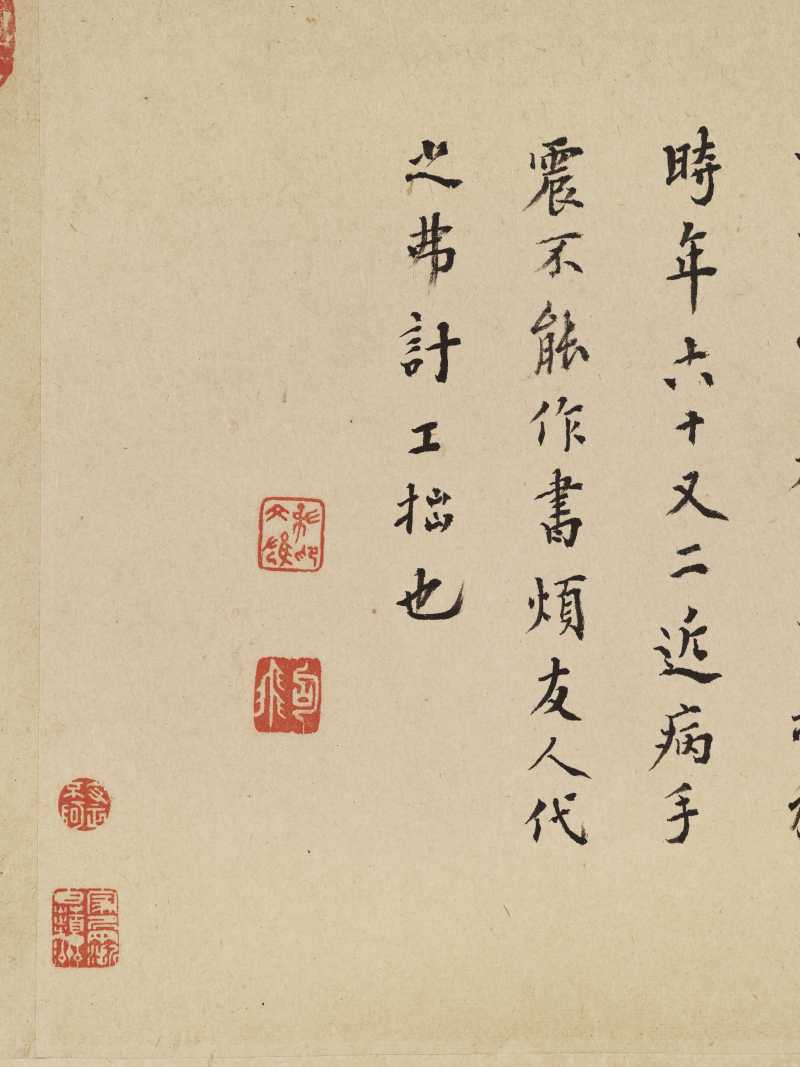 時年六十又二近病手
震不能作書煩友人代
之弗計工拙也